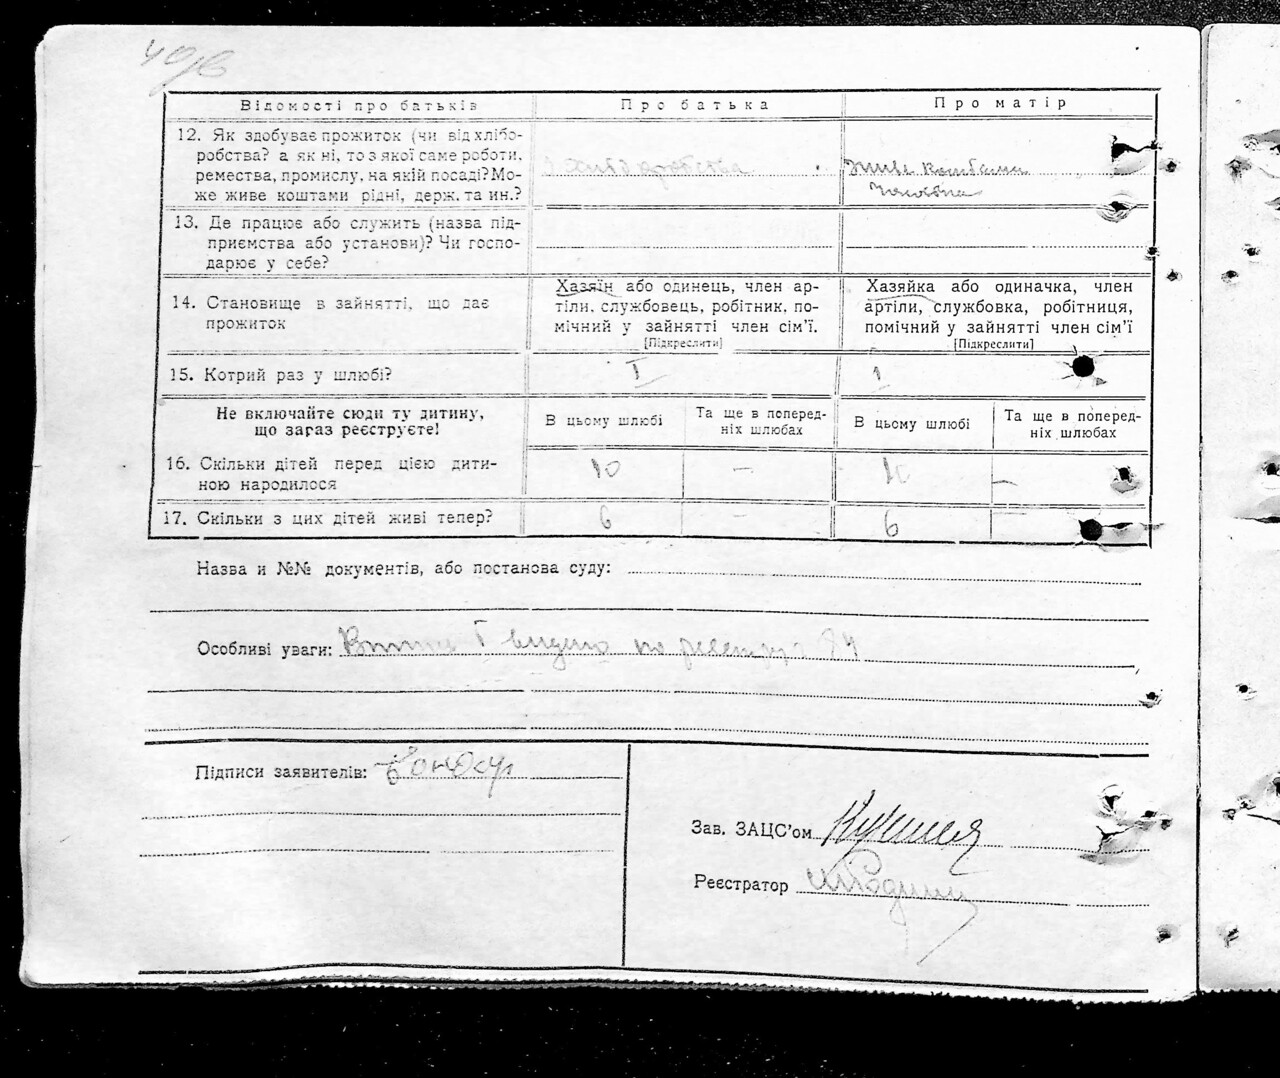 40/в
Відомості про батьків
Про батька
Про матір
12. Як здобуває прожиток (чи від хлібо-
робства? а як ні, то з якої саме роботи,
ремества, промислу, на якій посаді? Мо-
же живе коштами рідні, держ. та ин.?
З хліборобства
живе коштами
чоловіка
13. Де працює або служить (назва під-
приємства або установи)? Чи госпо-
дарює у себе?
14. Становище в зайнятті, що дає
прожиток
Хазяїн або одинець, член ар-
тіли, службовець, робітник, по-
мічний у зайнятті член сім’ї.
[Підкреслити]
Хазяйка або одиначка, член
артіли, службовка, робітниця,
помічний у зайнятті член сім’ї
[Підкреслити]
15. Котрий раз у шлюбі?
I
1
Не включайте сюди ту дитину,
що зараз реєструєте!
В цьому шлюбі
Та ще в поперед-
ніх шлюбах
В цьому шлюбі
Та ще в поперед-
ніх шлюбах
16. Скільки дітей перед цією дити-
ною народилося
10
—
10
—
17. Скільки з цих дітей живі тепер?
6
—
6
—
Назва и №№ документів, або постанова суду:
Особливі уваги: видано по реєстру 84
Підписи заявителів: Бондар
Зав. ЗАЦС’ом
Реєстратор